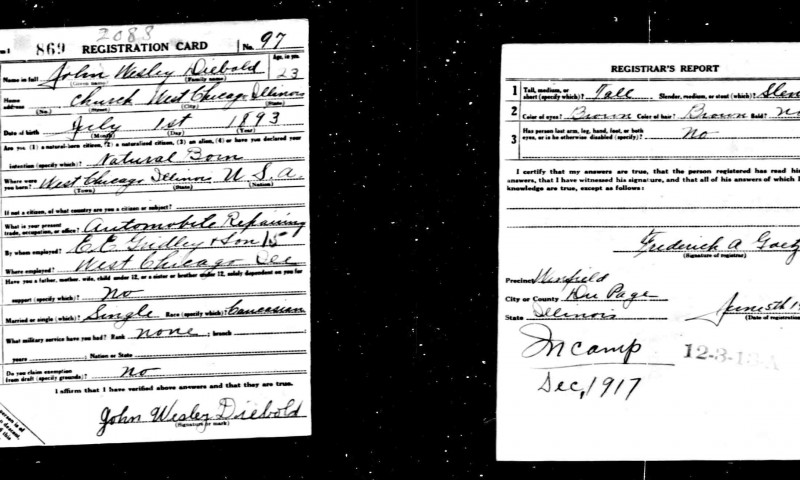 2088
869 REGISTRATION CARD No. 97
Age, in yrs.
Name in full John Wesley Diebold 23
(Given name) (Family name)
Home address Church West Chicago Illinois
(No.) (Street) (City) (State)
Date of birth July 1st 1893
(Month) (Day) (Year)
Are you (1) a natural-born citizen, (2) a naturalized citizen, (3) an alien, (4) or have you declared your
intention (specify which)? Natural Born
Where were you born? West Chicago Illinois U.S.A.
(Town) (State) (Nation)
If not a citizen, of what country are you a citizen or subject?
What is your present trade, occupation, or office? Automobile Repairing
By whom employed? E.E. Gridley & Son 15
Where employed? West Chicago Ill
Have you a father, mother, wife, child under 12, or a sister or brother under 12, solely dependent on you for
support (specify which)? No
Married or single (which)? Single Race (specify which)? Caucasian
What military service have you had? Rank none ; branch
years ; Nation or State
Do you claim exemption from draft (specify grounds)? No
I affirm that I have verified above answers and that they are true.
John Wesley Diebold
(Signature or mark)
REGISTRAR'S REPORT
1 Tall, medium, or short (specify which)? Tall Slender, medium, or stout (which)? Slen
2 Color of eyes? Brown Color of hair? Brown Bald? No
3 Has person lost arm, leg, hand, foot, or both
eyes, or is he otherwise disabled (specify)? No
I certify that my answers are true, that the person registered has read his
answers, that I have witnessed his signature, and that all of his answers of which I
knowledge are true, except as follows:
Frederick A Goetz
(Signature of registrar)
Precinct Winfield
City or County Du Page
State Illinois June 5th 19
(Date of registration
In camp
Dec, 1917